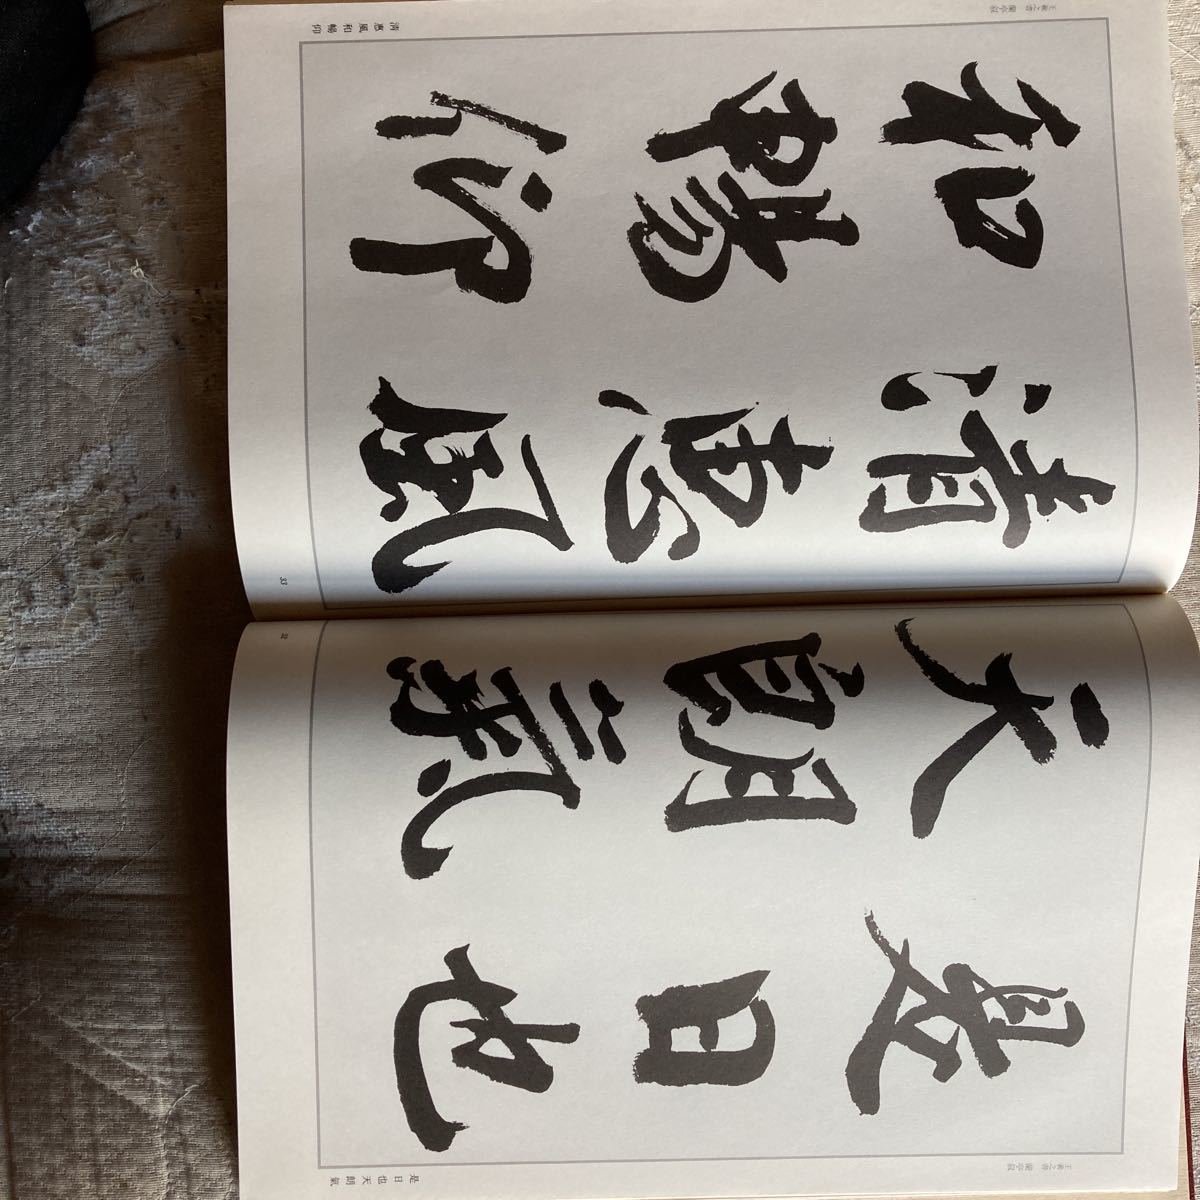 王羲之書 蘭亭叙
是日也
天朗氣
是日也天朗氣
32
清惠風
和暢仰
清惠風和暢仰
33
王羲之書 蘭亭叙